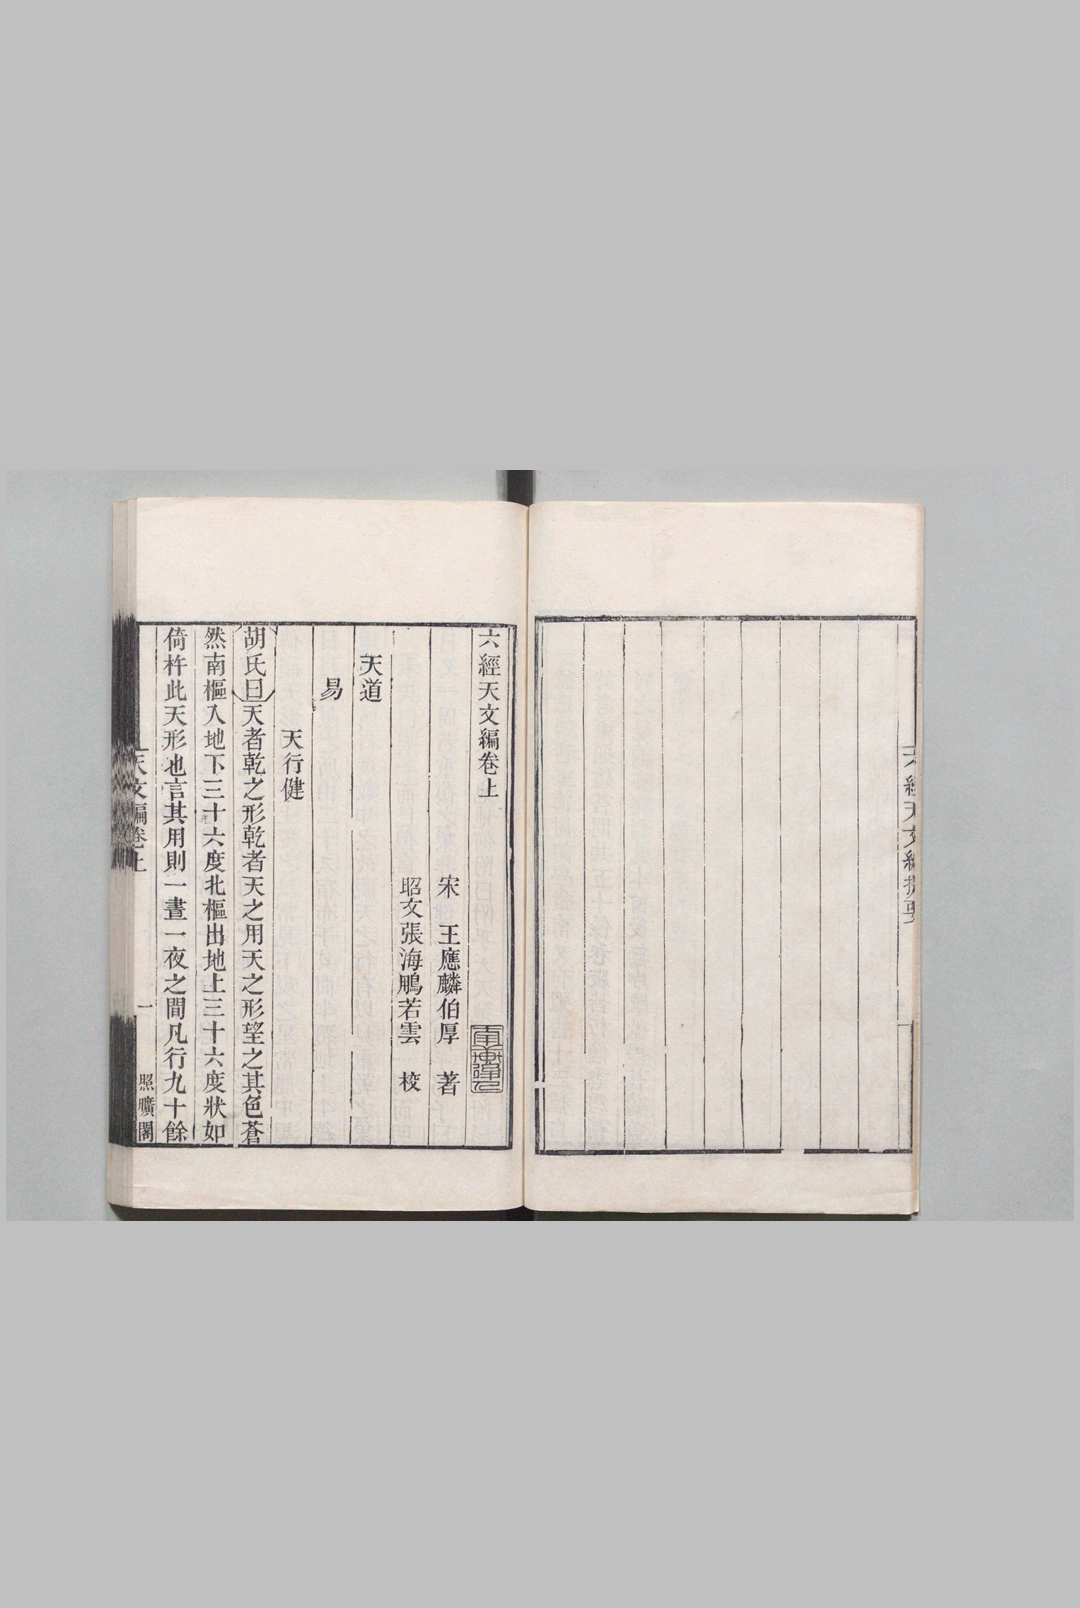 六經天文編提要
六經天文編卷上
宋 王應麟伯厚 著
昭文張海鵬若雲 校
天道
易
天行健
胡氏曰天者乾之形乾者天之用天之形望之其色蒼
然南樞入地下三十六度北樞出地上三十六度狀如
倚杵此天形也言其用則一晝一夜之間凡行九十餘
天文編卷上
一
照曠閣